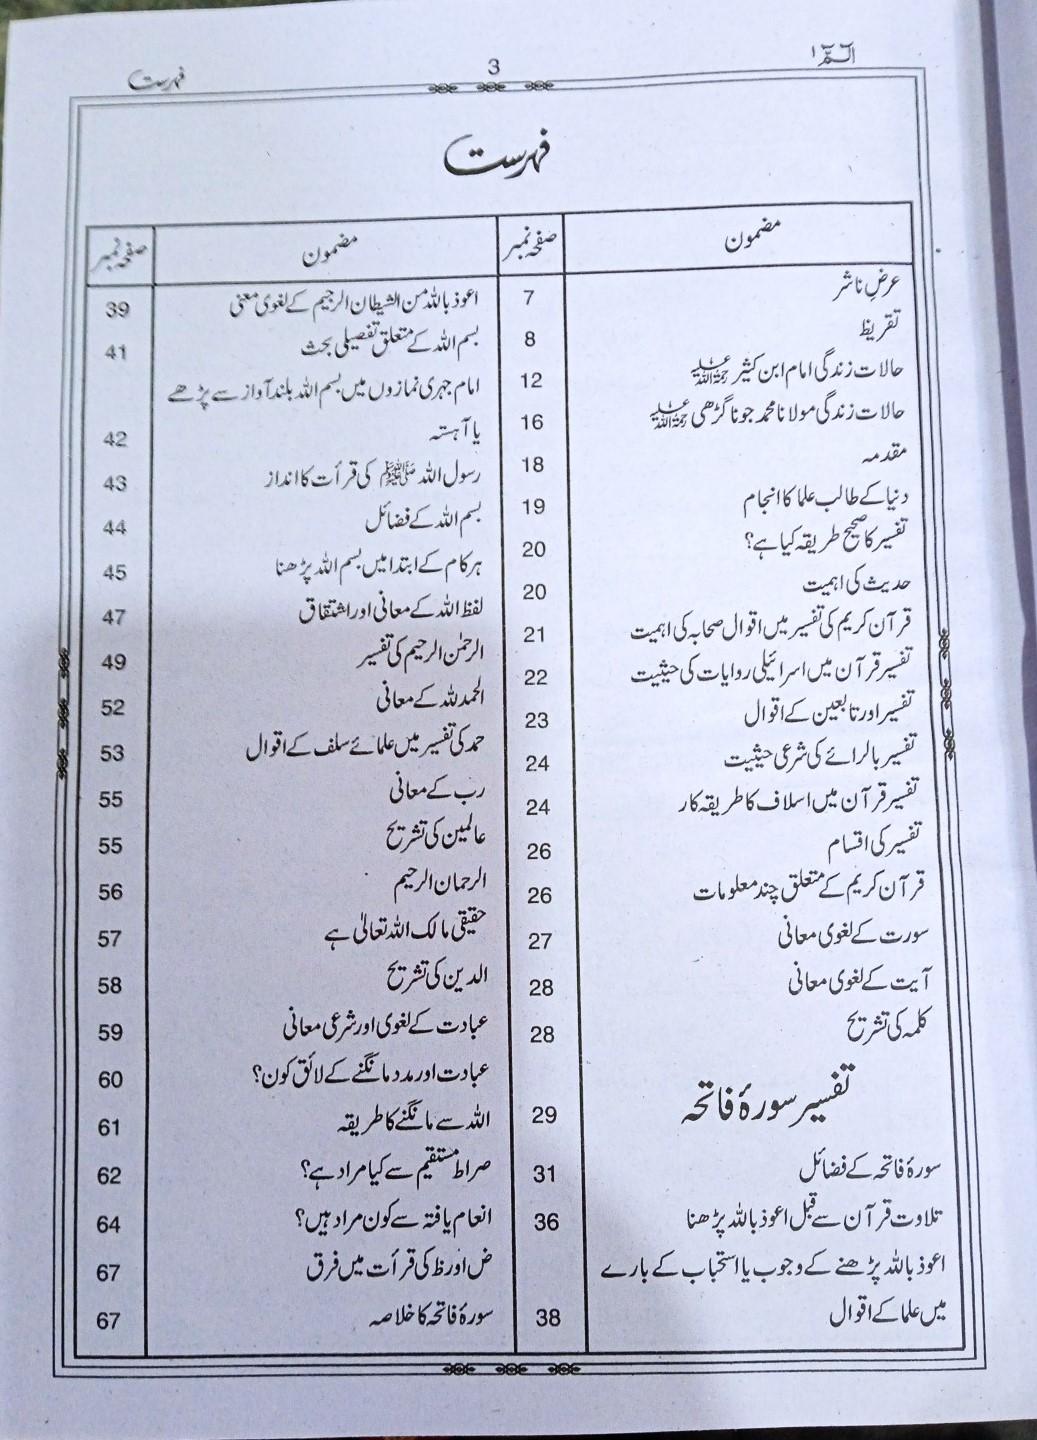 الٓـمّٓ ۱
3
فہرست
فہرست
مضمون صفحہ نمبر
عرضِ ناشر 7
تقریظ 8
حالات زندگی امام ابن کثیر رحمۃ اللہ علیہ 12
حالات زندگی مولانا محمد جونا گڑھی رحمۃ اللہ علیہ 16
مقدمہ 18
دنیا کے طالب علما کا انجام 19
تفسیر کا صحیح طریقہ کیا ہے؟ 20
حدیث کی اہمیت 20
قرآن کریم کی تفسیر میں اقوال صحابہ کی اہمیت 21
تفسیر قرآن میں اسرائیلی روایات کی حیثیت 22
تفسیر اور تابعین کے اقوال 23
تفسیر بالرائے کی شرعی حیثیت 24
تفسیر قرآن میں اسلاف کا طریقہ کار 24
تفسیر کی اقسام 26
قرآن کریم کے متعلق چند معلومات 26
سورت کے لغوی معانی 27
آیت کے لغوی معانی 28
کلمہ کی تشریح 28
تفسیر سورۂ فاتحہ 29
سورۂ فاتحہ کے فضائل 31
تلاوت قرآن سے قبل اعوذ باللہ پڑھنا 36
اعوذ باللہ پڑھنے کے وجوب یا استحباب کے بارے
میں علما کے اقوال 38
مضمون صفحہ نمبر
اعوذ باللہ من الشیطان الرجیم کے لغوی معنی 39
بسم اللہ کے متعلق تفصیلی بحث 41
امام جہری نمازوں میں بسم اللہ بلند آواز سے پڑھے
یا آہستہ 42
رسول اللہ ﷺ کی قرأت کا انداز 43
بسم اللہ کے فضائل 44
ہر کام کے ابتدا میں بسم اللہ پڑھنا 45
لفظ اللہ کے معانی اور اشتقاق 47
الرحمٰن الرحیم کی تفسیر 49
الحمد للہ کے معانی 52
حمد کی تفسیر میں علمائے سلف کے اقوال 53
رب کے معانی 55
عالمین کی تشریح 55
الرحمان الرحیم 56
حقیقی مالک اللہ تعالیٰ ہے 57
الدین کی تشریح 58
عبادت کے لغوی اور شرعی معانی 59
عبادت اور مدد مانگنے کے لائق کون؟ 60
اللہ سے مانگنے کا طریقہ 61
صراط مستقیم سے کیا مراد ہے؟ 62
انعام یافتہ سے کون مراد ہیں؟ 64
ض اور ظ کی قرأت میں فرق 67
سورۂ فاتحہ کا خلاصہ 67